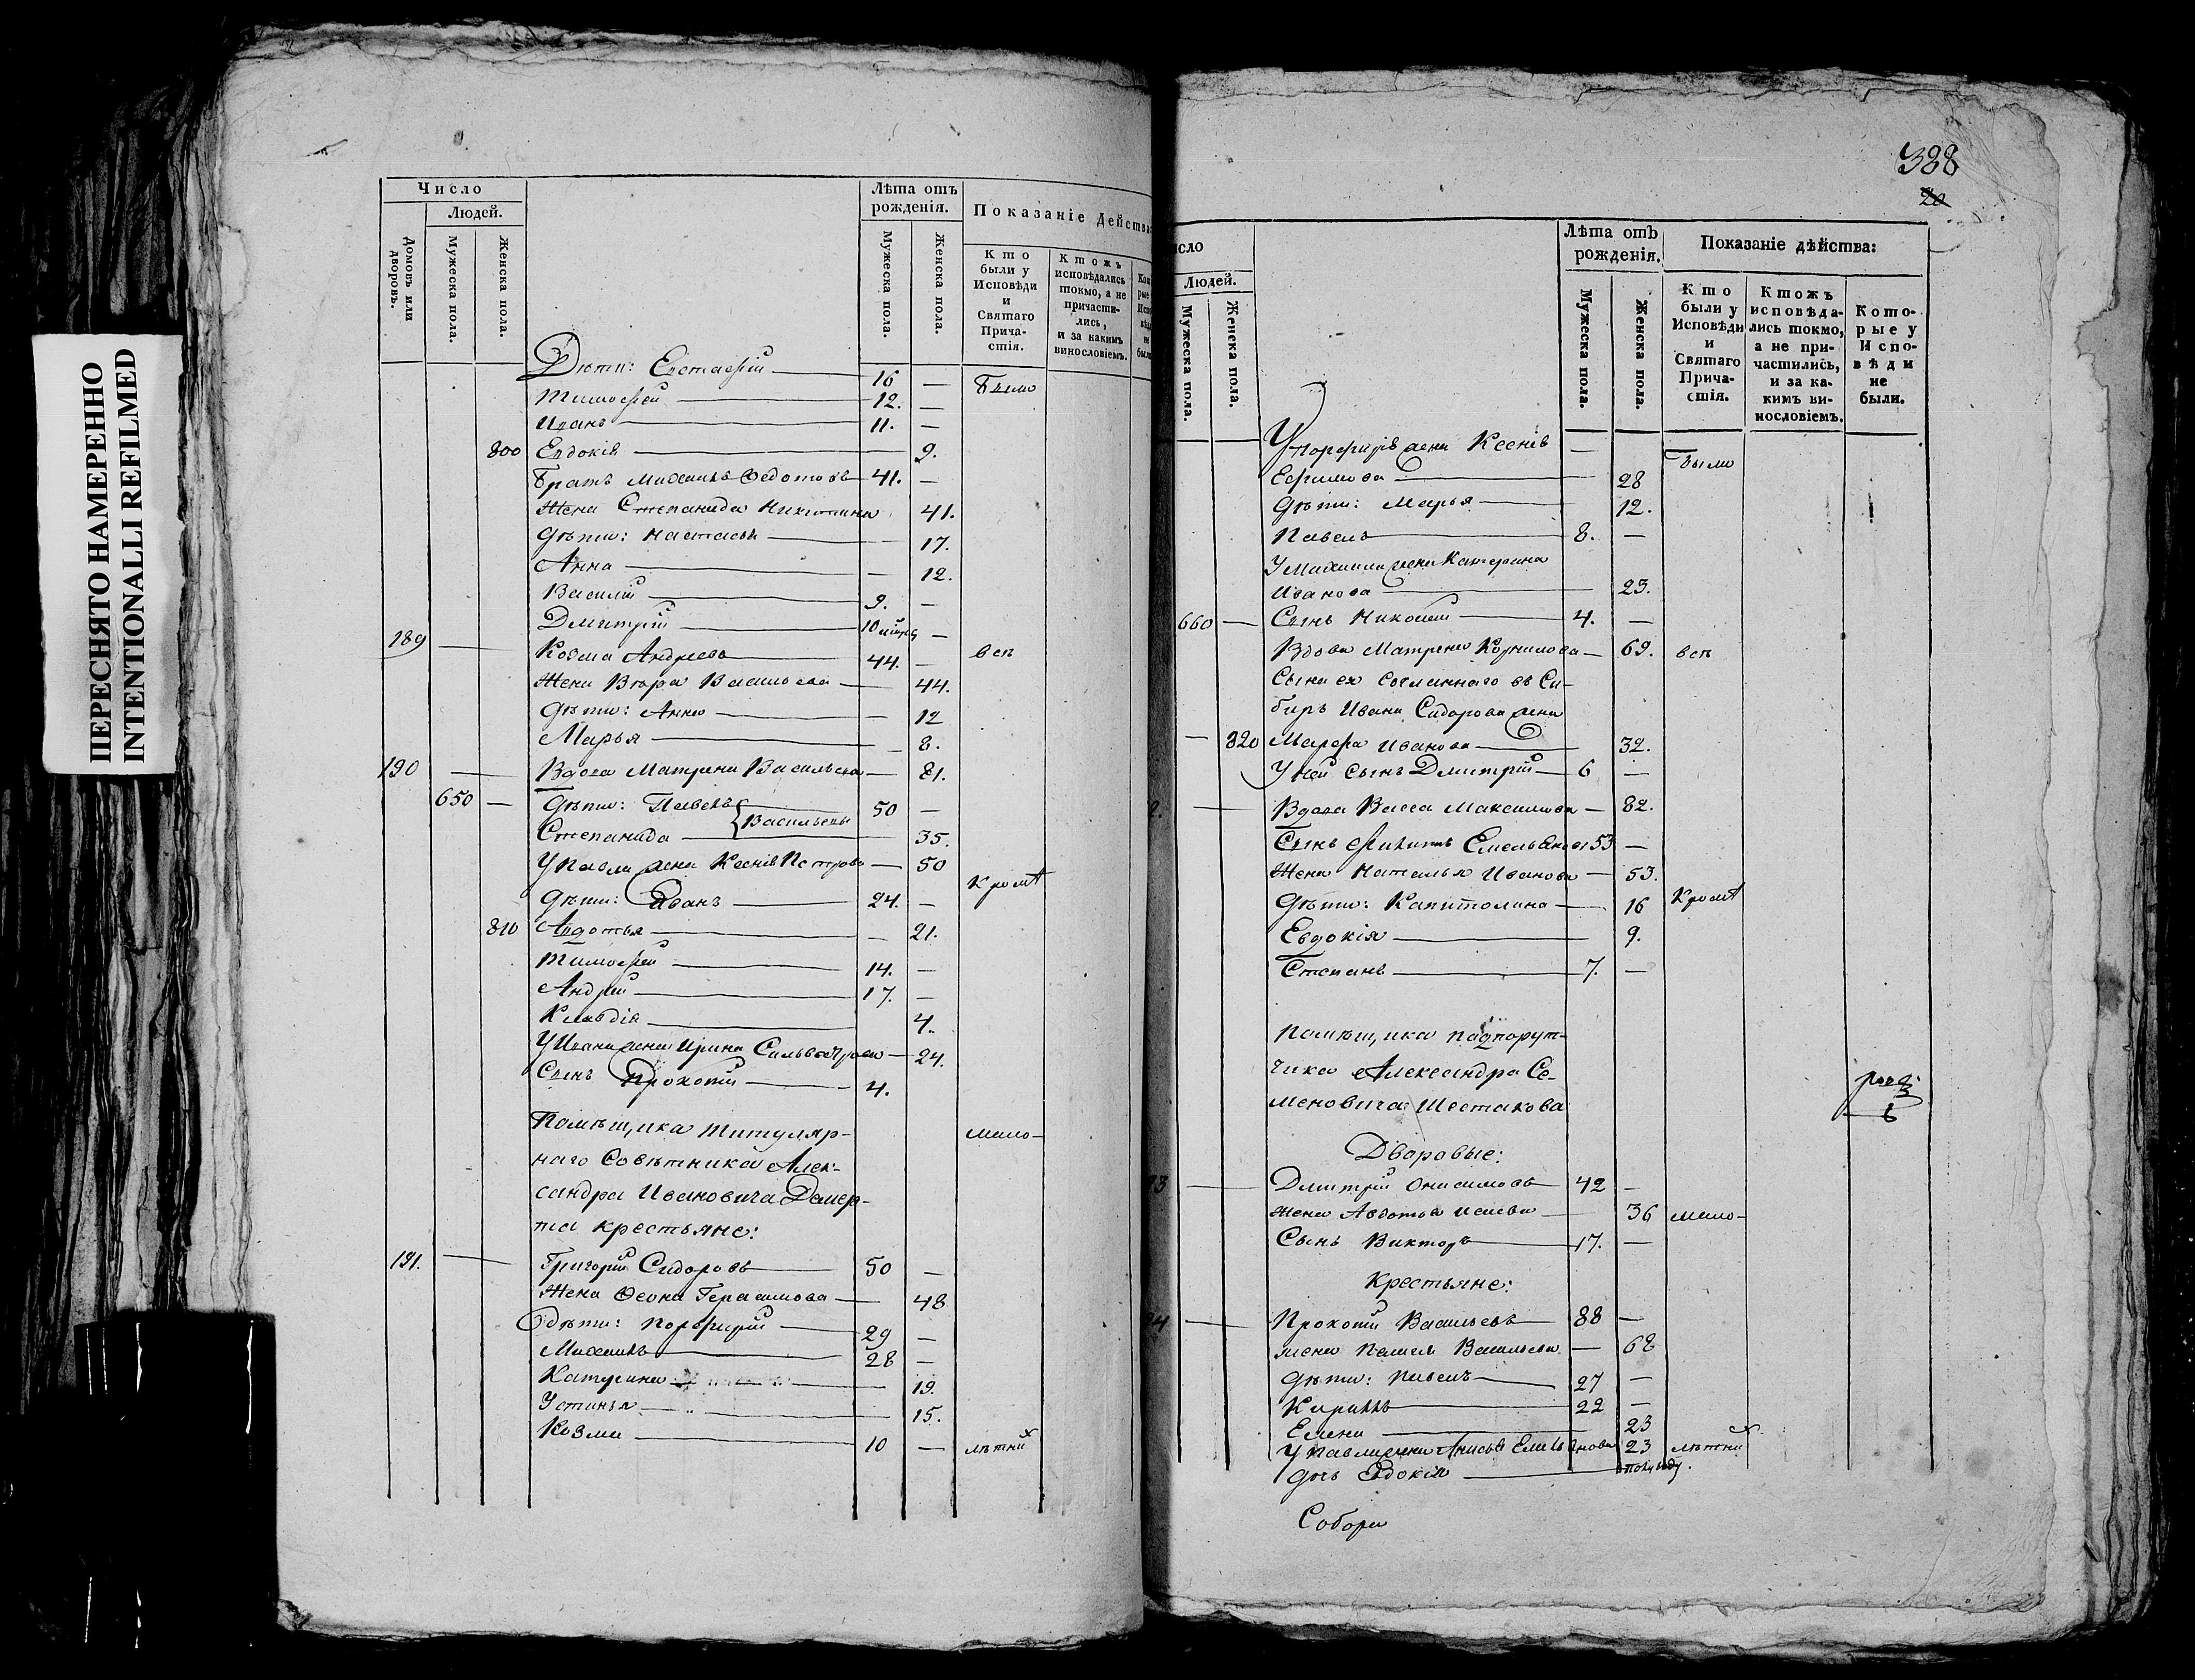 ПЕРЕСНЯТО НАМЕРЕННО
INTENTIONALLI REFILMED
Число
Людей.
Домовъ или дворовъ.
Мужеска пола.
Женска пола.
Лѣта отъ рожденія.
Мужеска пола.
Женска пола.
Показаніе Дейста
Кто были у Исповѣди и Святаго Причастія.
Ктожъ исповѣдались токмо, а не причастились, и за какимъ винословіемъ.
Дѣти: Евстафій 16 — Были
Тимофей 12. —
Иванъ 11. —
800 Евдокія 9.
Братъ Михаилъ Федотовъ 41. —
Жена Степанида Никитина 41.
Дѣти: Настасья — 17.
Анна — 12.
Василій 9. —
Дмитрій 10 —
189 — Козма Андреевъ 44. — всѣ
Жена Вѣра Васильева — 44.
Дѣти: Анна — 12
Марья — 8.
190 — Вдова Матрена Васильева — 81.
650 — Дѣти: Павелъ 50 —
Васильевы
Степанида 35.
У Павла жена Ксенія Петрова — 50
кромѣ
Дѣти: Иванъ 24. —
810 Авдотья — 21.
Тимофей 14. —
Андрей 17. —
Клавдія 4.
У Ивана жена Ирина Сильвестрова — 24.
Сынъ Прокопій 4.
Помѣщика Титуляр- мало-
наго Совѣтника Алек-
сандра Ивановича
крестьяне:
191. — Григорій Сидоровъ 50 —
Жена Ѳеона Герасимова — 48
Дѣти: Порфирій 29 —
Михаилъ 28 —
Катерина — 19.
Устинья — 15.
Козма 10 — лѣтних
388
20
сло
Людей.
Мужеска пола.
Женска пола.
Лѣта отъ рожденія.
Мужеска пола.
Женска пола.
Показаніе дѣйства:
Кто были у Исповѣди и Святаго Причастія.
Ктожъ исповѣдались токмо, а не причастились, и за какимъ винословіемъ.
Которые у Исповѣди не были.
У Порфирія жена Ксенія — Были
Ефимова — 28
Дѣти: Марья 12.
Павелъ 8. —
У Михаила жена Катерина
Иванова — 23.
660 — Сынъ Николай 4. —
Вдова Матрена Корнилова — 69. всѣ
Сына ея сосланнаго въ Си-
бирь Ивана Сидорова жена
— 820 Марфа Иванова — 32.
У ней сынъ Дмитрій 6 —
2. — Вдова Васса Максимова — 82.
Сынъ Филипъ Емельяновъ 53 —
Жена Наталья Иванова — 53.
Дѣти: Капитолина — 16 кромѣ
Евдокія 9.
Степанъ 7. —
Помѣщика подпорут-
чика Александра Се-
меновича Шестакова
Дворовые:
93 — Дмитрій Онисимовъ 42 —
Жена Авдотья Исаева — 36 мало-
Сынъ Викторъ 17. —
Крестьяне:
94 — Прокопій Васильевъ 88 —
жена Пелагея Васильева — 68
Дѣти: Павелъ 27 —
Кирилъ 22 —
Елена 23
У Павла жена Анисья Емельянова 23 лѣтних
дочь Евдокія
Собора